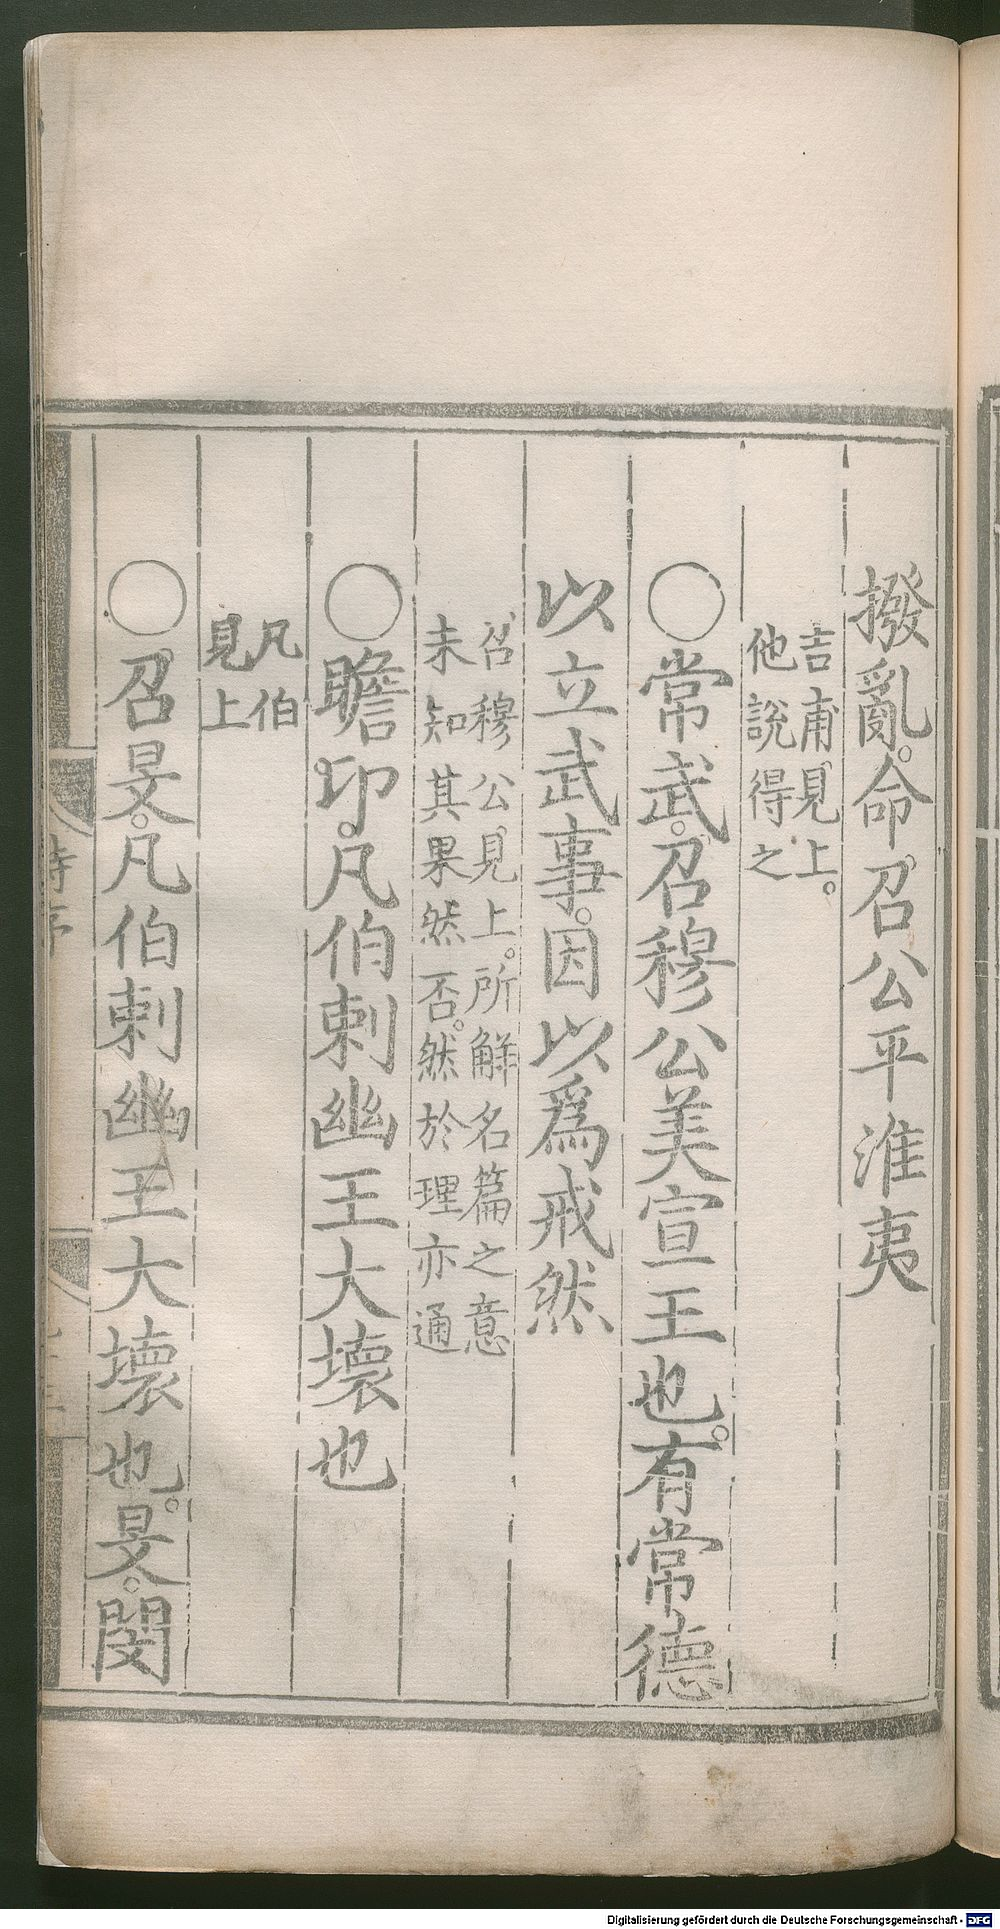 撥亂。命召公平淮夷
吉甫見上。
他說得之
○常武。召穆公美宣王也。有常德
以立武事。因以爲戒然
召穆公見上。所解名篇之意
未知其果然否。然於理亦通
○瞻卬。凡伯刺幽王大壞也
凡伯
見上
○召旻。凡伯刺幽王大壞也。旻。閔
詩序
Digitalisierung gefördert durch die Deutsche Forschungsgemeinschaft - DFG